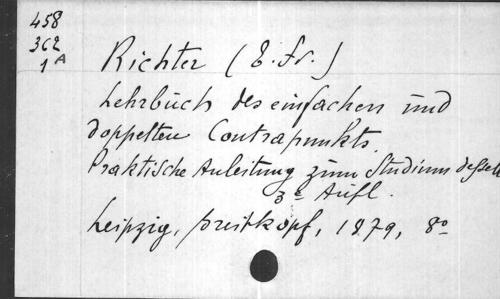 458
362
1 A
Richter (E. Fr.)
Lehrbuch des einfachen und
doppelten Contrapunkts.
Praktische Anleitung zum Studium dessel
3e Aufl.
Leipzig, Breitkopf, 1879, 8o